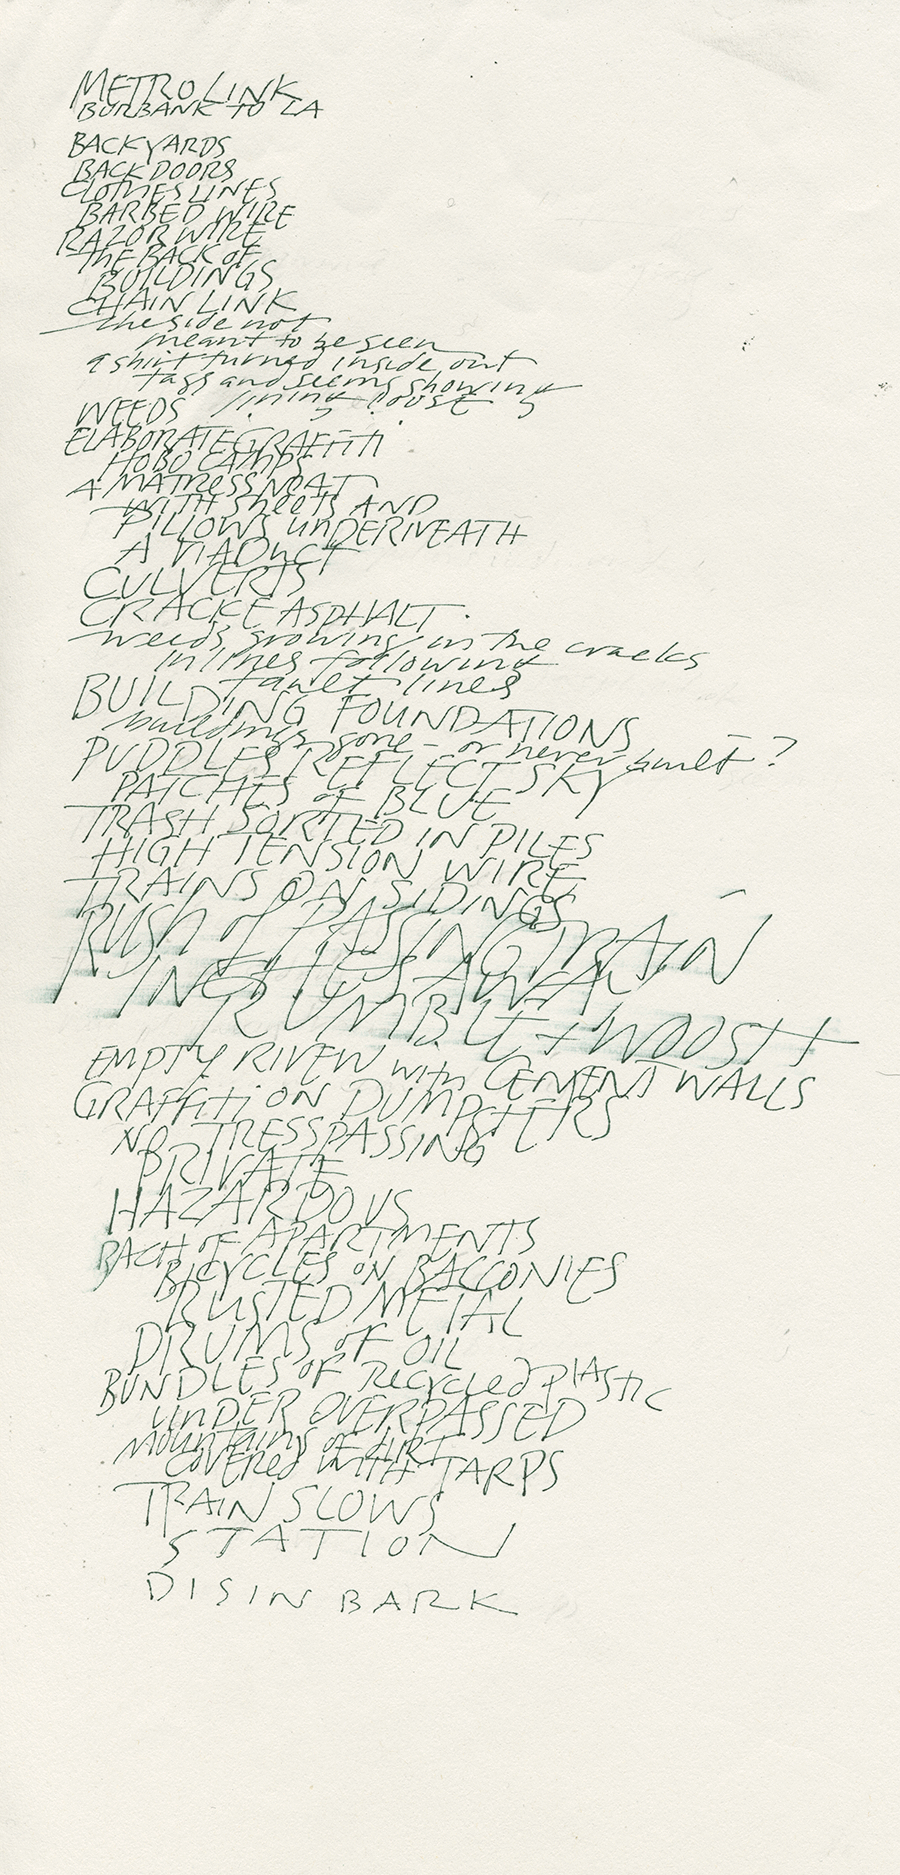 METROLINK
BURBANK TO LA
BACKYARDS
BACK DOORS
CLOTHES LINES
BARBED WIRE
RAZOR WIRE
THE BACK OF
BUILDINGS
CHAIN LINK
the side not
meant to be seen
a shirt turned inside out
tags and seems showing
lining loose
WEEDS
ELABORATE GRAFFITI
HOBO CAMPS
A MATRESS NEAT
WITH SHEETS AND
PILLOWS UNDERNEATH
A VIADUCT
CULVERTS
CRACKE ASPHALT
weeds growing in the cracks
in lines following
fawlt lines
BUILDING FOUNDATIONS
buildings gone - or never built?
PUDDLES REFLECT SKY
PATCHES OF BLUE
TRASH SORTED IN PILES
HIGH TENSION WIRE
TRAINS ON SIDINGS
RUSH of PASSING TRAIN
INCHES AWEAY
RUMBLE + WOOSH
EMPTY RIVEW with CEMENT WALLS
GRAFFITI ON DUMPSTERS
NO TRESSPASSING
PRIVATE
HAZARDOUS
BACH OF APARTMENTS
BICYCLES ON BACCONIES
RUSTED METAL
DRUMS OF OIL
BUNDLES OF Recycled PLASTIC
UNDER OVERPASSED
MOUNTAINS OF DIRT
COVERED WITH TARPS
TRAIN SLOWS
STATION
DISIN BARK